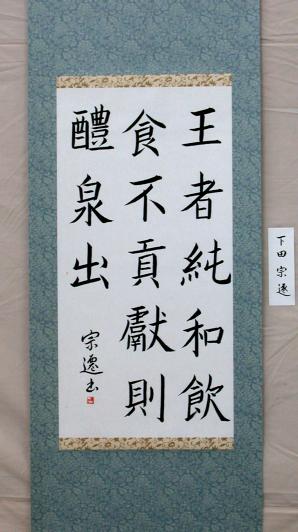 王者純和飲
食不貢獻則
醴泉出
宗遷书
下田宗